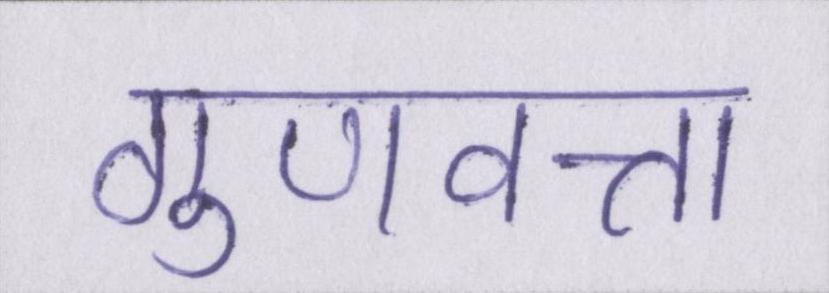 गुणवत्ता